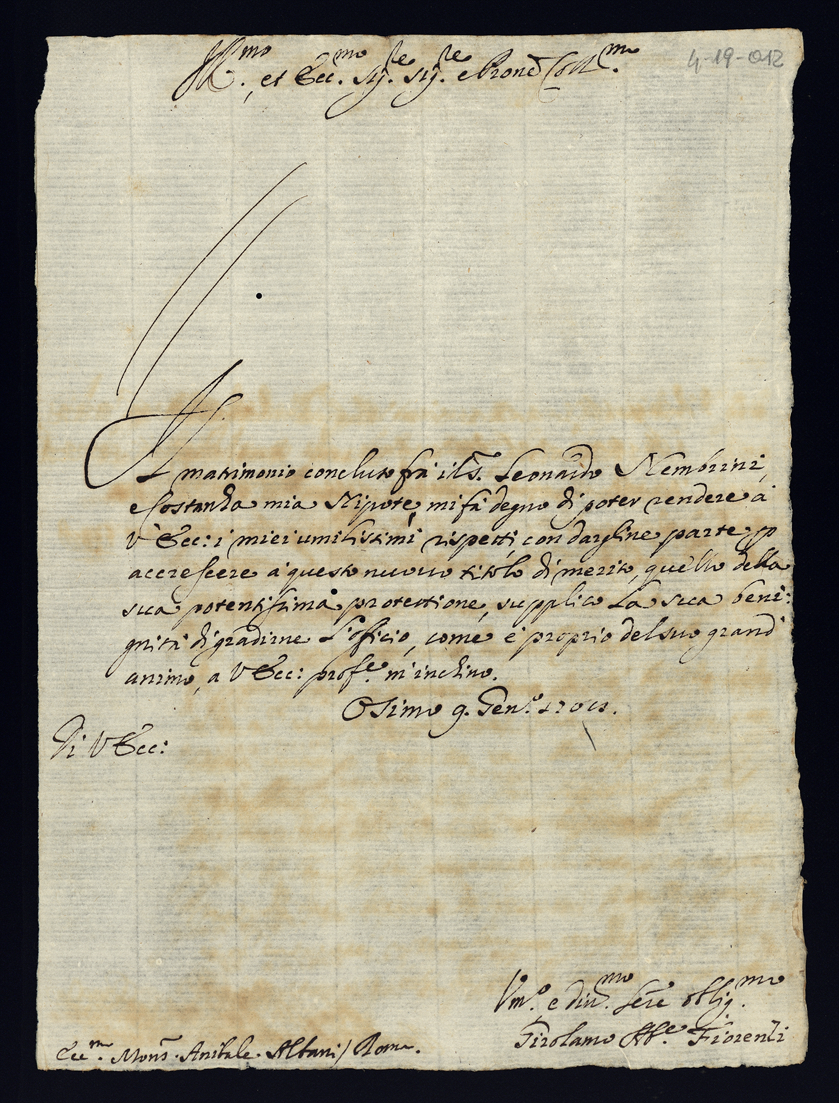 Ill.mo, et Ecc.mo Sig.re Sig.re e Pron Coll.mo
4-19-012
Il matrimonio concluso frà il S. Leonardo Nembrini,
e Costanza mia Nipote, mi fà degno di poter rendere à
V Ecc: i miei umilissimi rispetti, con dargline parte; p
accrescere à questo nuovo titolo di merito, quello della
sua potentissima protectione, supplico La sua beni:
gnità di gradirne L'officio, come è proprio del suo grand'
animo, a V Ecc: prof.e m'inchino.
Osimo 9. Gen.o
Di V Ecc:
Um.o, e div.mo Sere oblig.mo
Girolamo Ab.e Fiorenzi
Ecc.mo Mons. Anibale Albani / Roma.